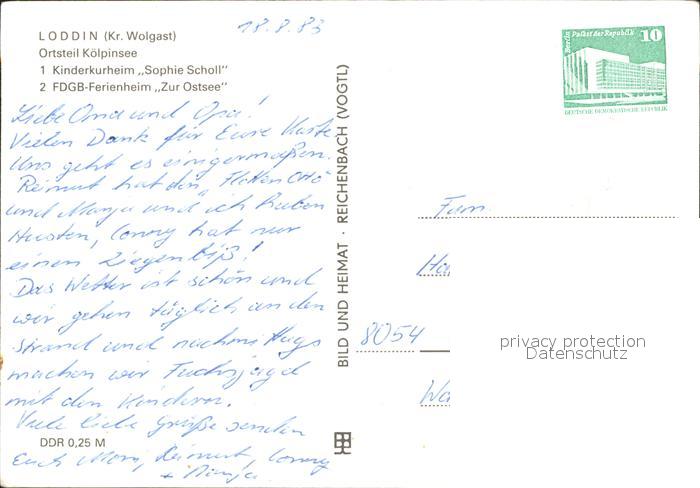 18.8.83
LODDIN (Kr. Wolgast)
Ortsteil Kölpinsee
1 Kinderkurheim „Sophie Scholl"
2 FDGB-Ferienheim „Zur Ostsee"
Liebe Oma und Opa!
Vielen Dank für Eure Karte.
Uns geht es einigermaßen.
Reimut hat den „Flotten Otto"
und Manja und ich haben
Husten, Conny hat nur
einen Ziegenbiß!
Das Wetter ist schön und
wir gehen täglich an den
Strand und nachmittags
machen wir Fuchsjagd
mit den Kindern.
Viele liebe Grüße senden
Euch Moni, Reimut, Conny
+ Manja
DDR 0,25 M
BILD UND HEIMAT · REICHENBACH (VOGTL)
Berlin Palast der Republik 10
DEUTSCHE DEMOKRATISCHE REPUBLIK
Fam.
8054
privacy protection
Datenschutz